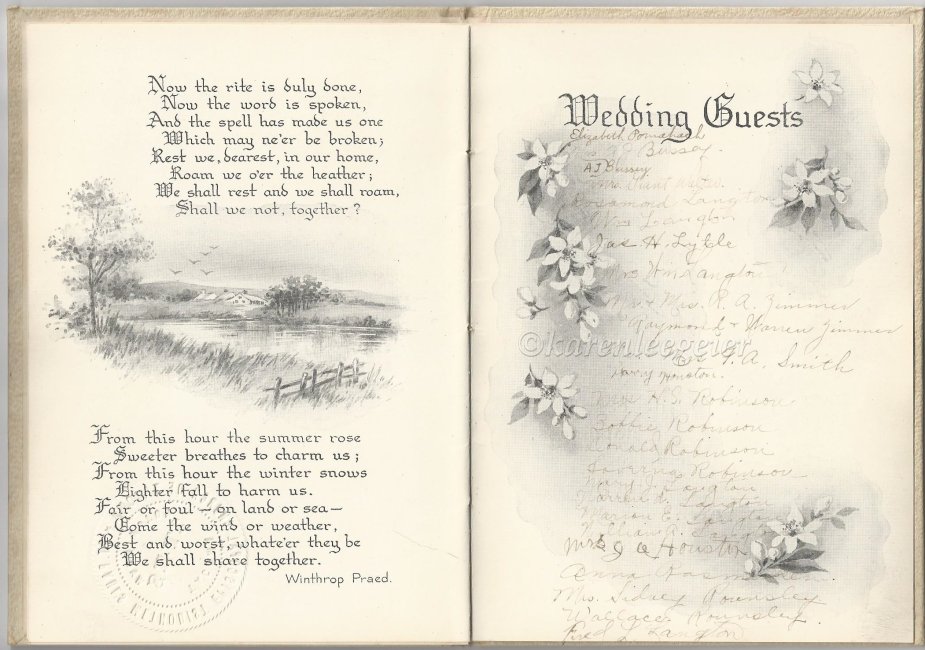 Now the rite is duly done,
Now the word is spoken,
And the spell has made us one
Which may ne'er be broken;
Rest we, dearest, in our home,
Roam we o'er the heather;
We shall rest and we shall roam,
Shall we not, together?
From this hour the summer rose
Sweeter breathes to charm us;
From this hour the winter snows
Lighter fall to harm us.
Fair or foul — on land or sea —
Come the wind or weather,
Best and worst, whate'er they be
We shall share together.
Winthrop Praed.
Wedding Guests
Elizabeth
Bussey.
A J Bussey
Mrs.
Rosamond Langton
Langton
Jas H. Lytle
Mrs Wm Langton
Mr. & Mrs. R. A. Zimmer
Raymond & Warren Zimmer
©karenleegeier
T. A. Smith
Harry Houston.
H. S. Robinson
Bobbie Robinson
Donald Robinson
Robinson
Mary J. Langton
Warren
Marion E.
Mrs J A Houston
Anna
Mrs. Sidney Hounsley
Wallace Hounsley.
Fred L. Langton